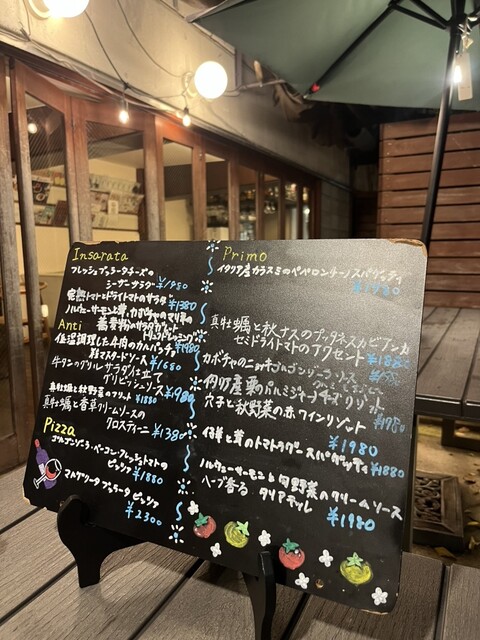 Insarata
フレッシュブラータチーズの
シーザーサラダ ¥1980
完熟トマトとドライトマトのサラダ ¥1380
ノルウェーサーモンと
¥1980
Anti
低温調理した牛肉のカルパッチョ
粒マスタードソース ¥1680
牛タングリル サラダ仕立て
グリビッシュソース ¥1980
真牡蠣と秋野菜のフリット ¥1880
真牡蠣と香草クリームソースの
クロスティーニ ¥1380
Pizza
ゴルゴンゾーラ・ベーコン・フレッシュトマトの
ピッツァ ¥1880
マルゲリータ ブラータ ピッツァ
¥2300
Primo
イタリア産カラスミのペペロンチーノ スパゲッティ
¥1980
真牡蠣と秋ナスのプッタネスカ
セミドライトマトのアクセント
カボチャのニョッキ ゴルゴンゾーラソース
イタリア産 のパルミジャーノチーズリゾット
穴子と秋野菜の赤ワインリゾット ¥1780
仔羊と茸のトマトラグーソース スパゲッティ ¥1880
¥1980
ノルウェーサーモンと旬野菜のクリームソース
ハーブ香る タリアテッレ
¥1980